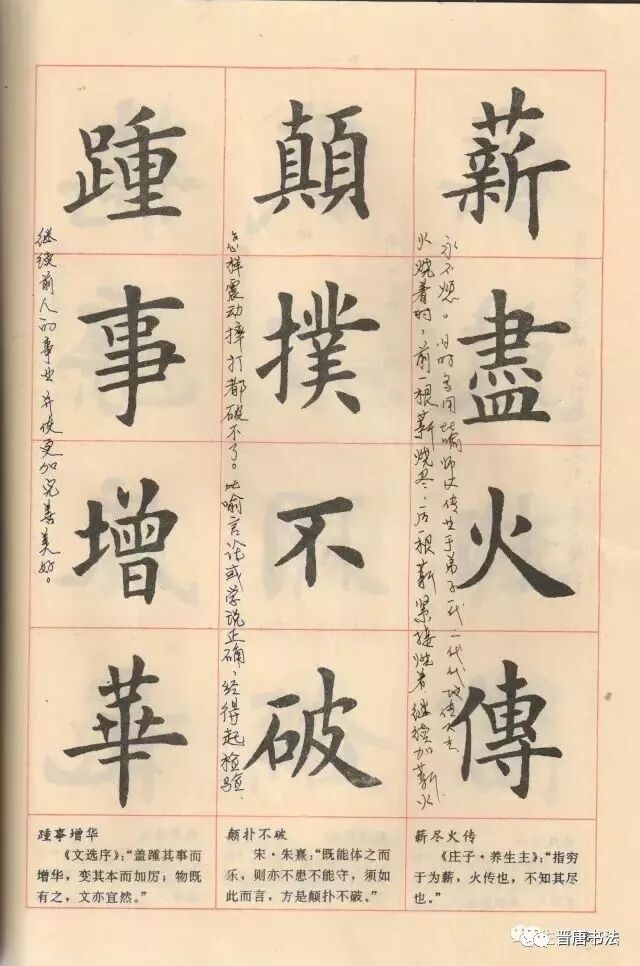 薪盡火傳
火烧着时，前一根薪烧尽，后一根薪紧接烧着继续加薪火
永不熄。旧时多用比喻师父传业于弟子一代一代地传下去
顛撲不破
怎样震动摔打都破不了。比喻言论或学说正确，经得起检验、
踵事增華
继续前人的事业并使更加完善美好。
薪尽火传
《庄子·养生主》：“指穷
于为薪，火传也，不知其尽
也。”
颠扑不破
宋·朱熹：“既能体之而
乐，则亦不患不能守，须如
此而言，方是颠扑不破。”
踵事增华
《文选序》：“盖踵其事而
增华，变其本而加厉；物既
有之，文亦宜然。”
晋唐书法